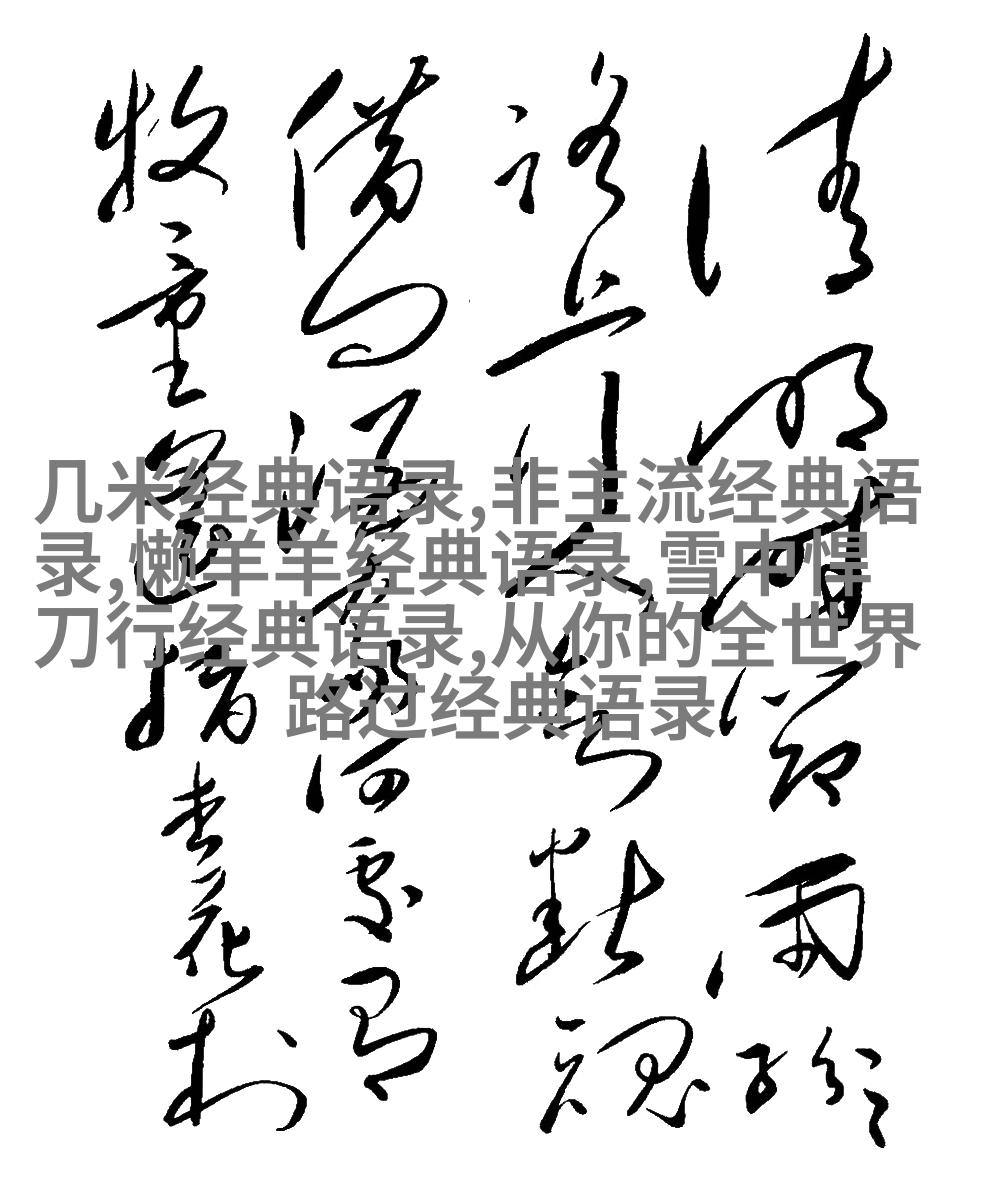 清明時節雨紛々
路上行人欲斷魂
借問酒家何處有
牧童遙指杏花村
几米经典语录,非主流经典语
录,懒羊羊经典语录,雪中悍
刀行经典语录,从你的全世界
路过经典语录